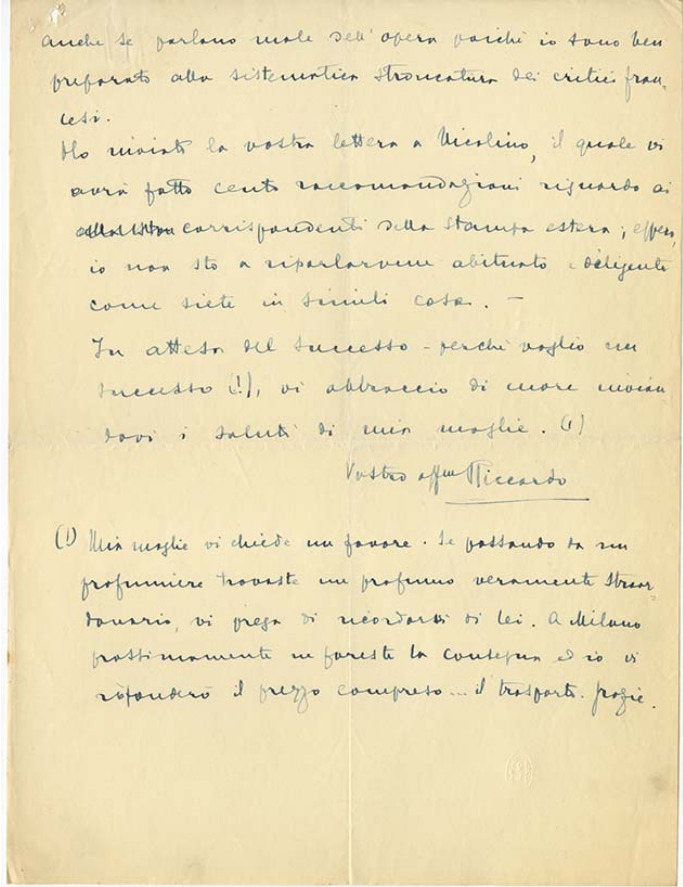 anche se parlano male dell'opera poichè io sono ben
preparato alla sistematica stroncatura dei critici fran-
cesi.
Ho inviato la vostra lettera a Nicolino, il quale vi
avrà fatto cento raccomandazioni riguardo ai
corrispondenti della stampa estera;
io non sto a riparlarvene abituato e diligente
come siete in simili cose. —
In attesa del successo - perchè voglio un
successo (!), vi abbraccio di cuore invian
dovi i saluti di mia moglie. (1)
Vostro affmo Riccardo
(1) Mia moglie vi chiede un favore. Se passando da un
profumiere trovaste un profumo veramente straor-
dinario, vi prega di ricordarvi di lei. A Milano
prossimamente ne fareste la consegna ed io vi
rifonderò il prezzo compreso... il trasporto. Grazie.